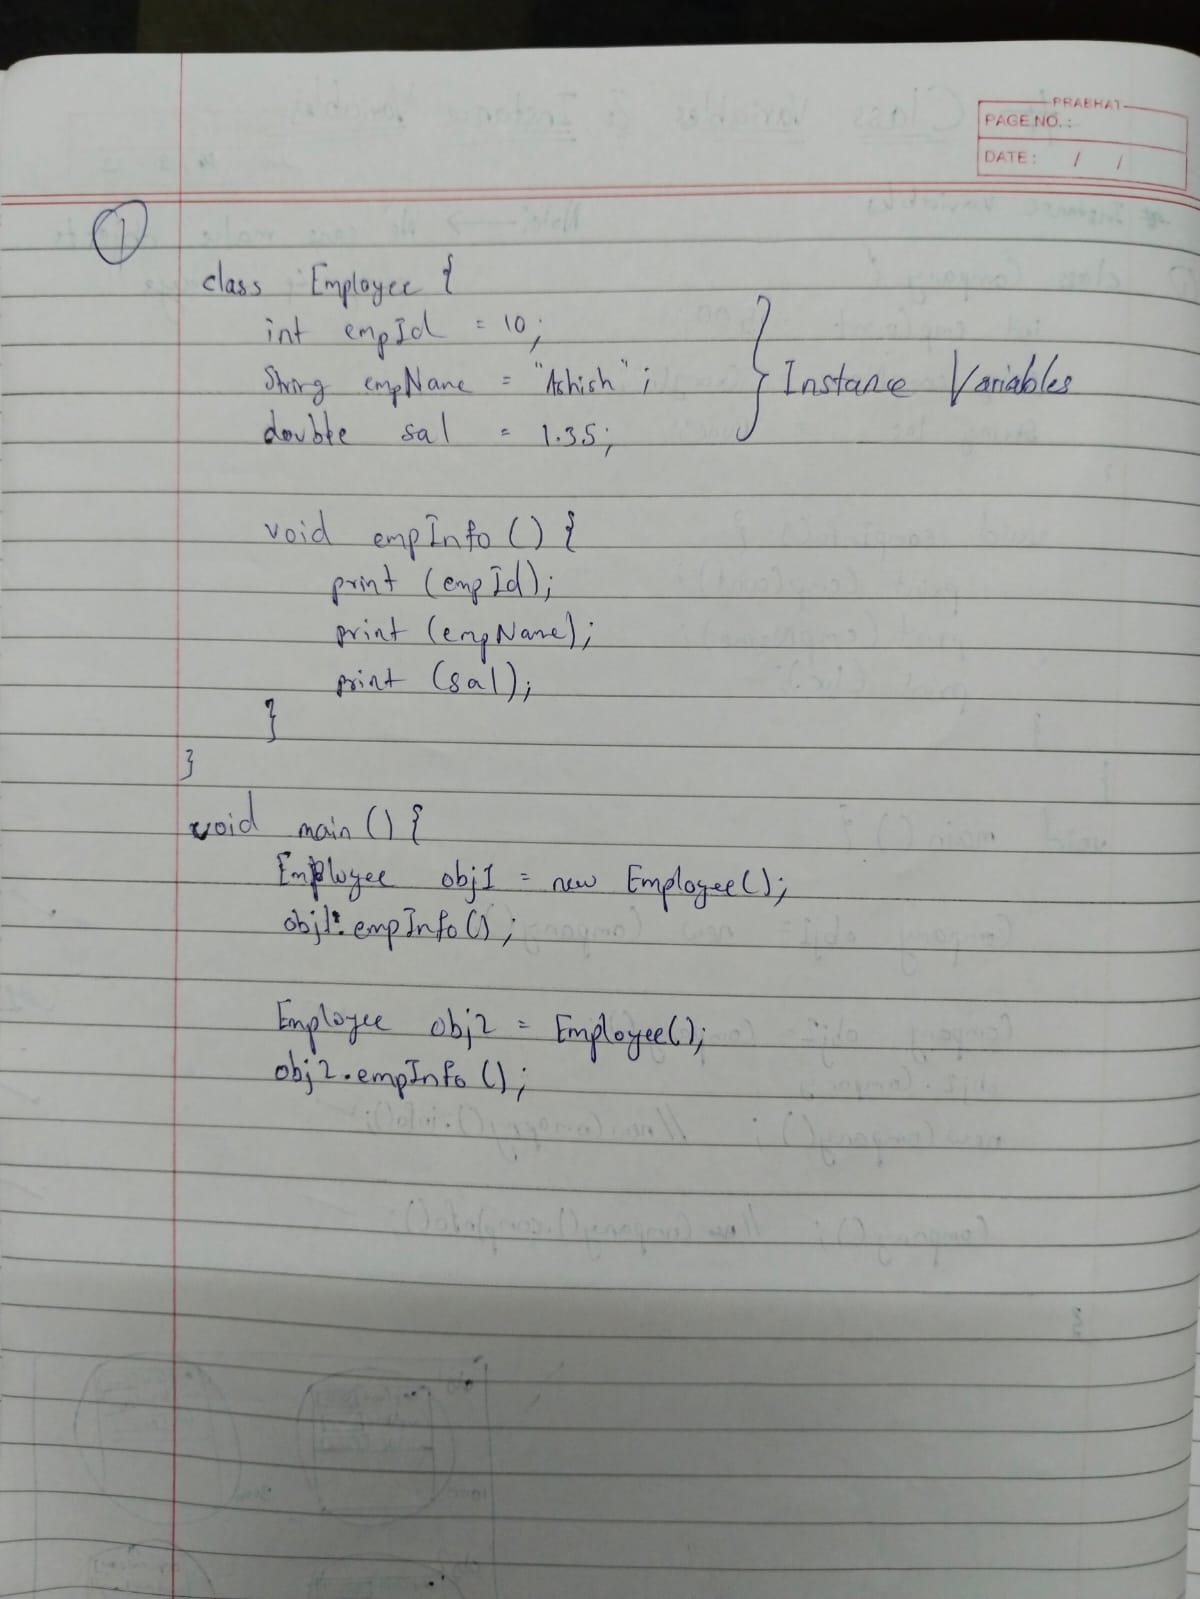 PRABHAT
PAGE NO. :
DATE : / /
1
class Employee {
int empId = 10;
String empName = "Ashish";
double sal = 1.35;
} Instance Variables
void empInfo () {
print (empId);
print (empName);
print (sal);
}
}
void main () {
Employee obj1 = new Employee();
obj1.empInfo();
Employee obj2 = Employee();
obj2.empInfo();